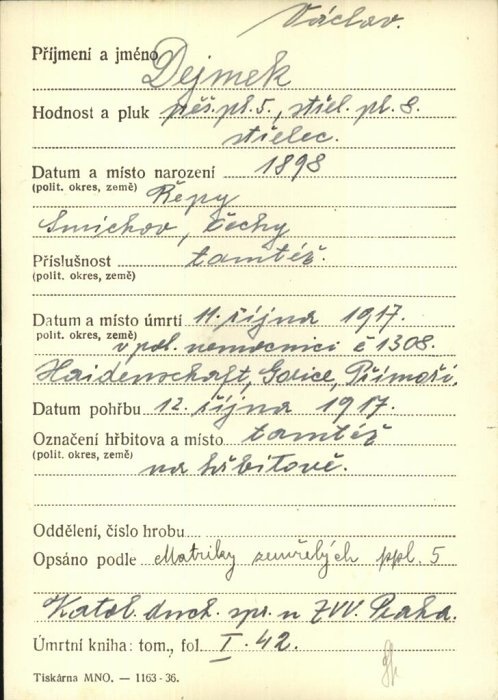 Václav.
Příjmení a jméno Dejmek
Hodnost a pluk pěš. pl. 5., střel. pl. 8.
střelec.
Datum a místo narození 1898
(polit. okres, země) Řepy
Smíchov, Čechy
Příslušnost tamtéž.
(polit. okres, země)
Datum a místo úmrtí 11. října 1917.
polit. okres, země) v pol. nemocnici č 1308.
Haidenschaft, Gorice, Přímoří.
Datum pohřbu 12. října 1917.
Označení hřbitova a místo tamtéž
(polit. okres, země)
na hřbitově.
Oddělení, číslo hrobu
Opsáno podle Matriky zemřelých ppl. 5
Katol. duch. spr. u ZVV. Praha.
Úmrtní kniha: tom., fol. I. 42.
Tiskárna MNO. — 1163-36.